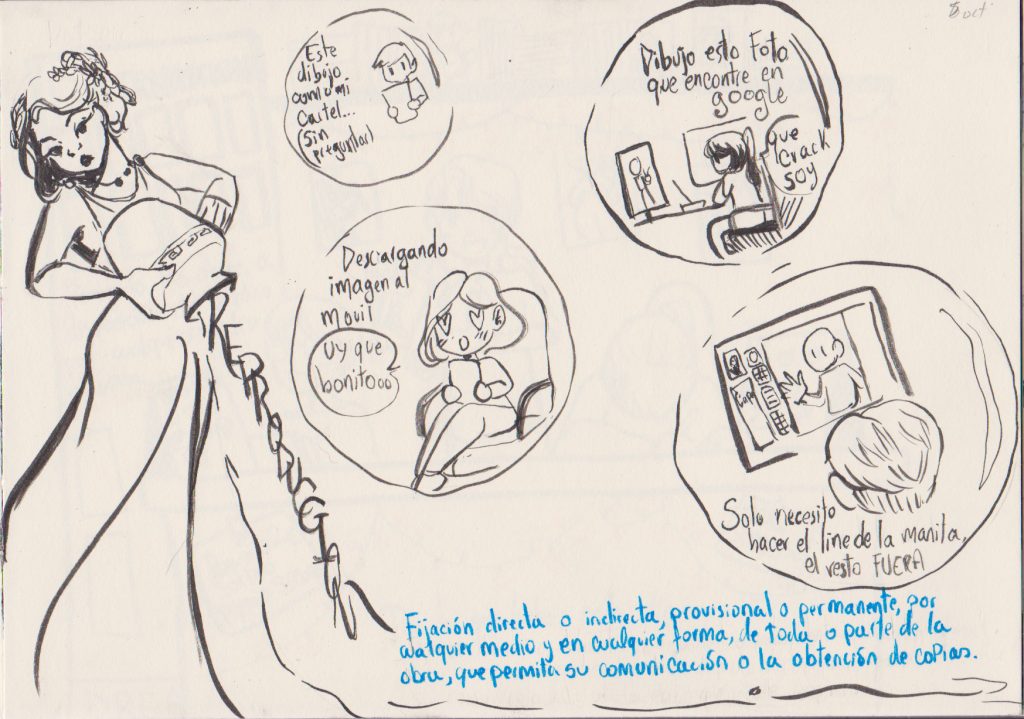 8 oct
Este
dibujo
como mi
Cartel...
(sin
preguntar)
Dibujo esto Foto
que encontre en
google
que
crack
soy
Descargando
imagen al
movil
Uy que
bonitooo
Capa
Solo necesito
hacer el line de la manita,
el resto FUERA
REPRODUCCIÓN
Fijación directa o indirecta, provisional o permanente, por
cualquier medio y en cualquier forma, de toda o parte de la
obra, que permita su comunicación o la obtención de copias.